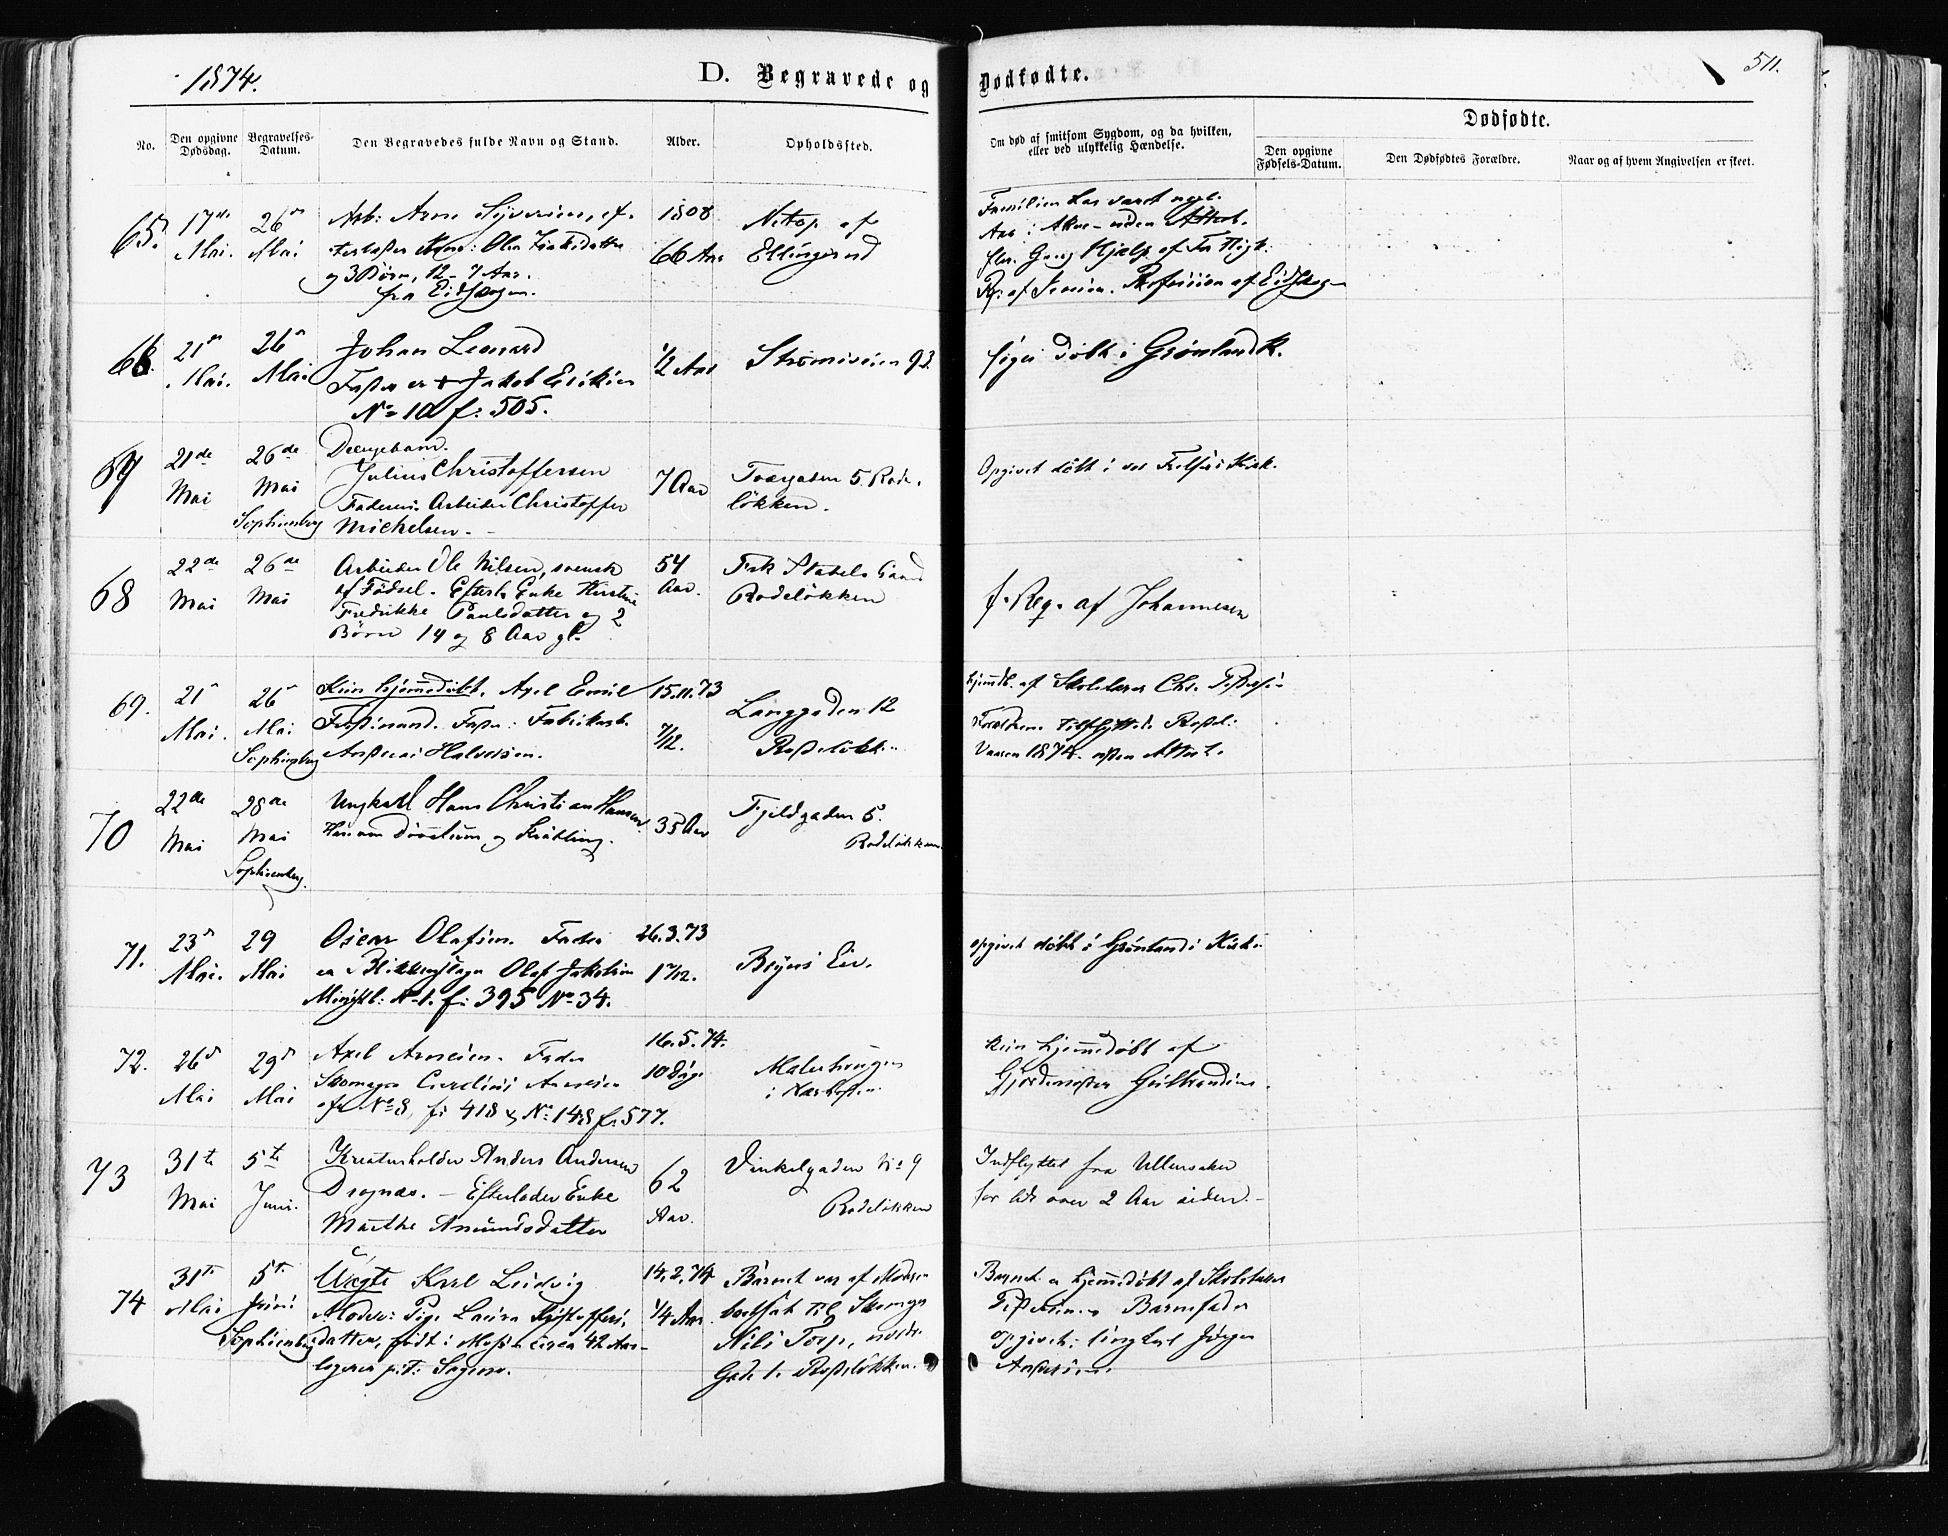 1874.
D. Begravede og Dødfødte.
511.
No.
Den opgivne Dødsdag.
Begravelses-Datum.
Den Begravedes fulde Navn og Stand.
Alder.
Opholdssted.
Om død af smitsom Sygdom, og da hvilken, eller ved ulykkelig Hændelse.
Dødfødte.
Den opgivne Fødsels-Datum.
Den Dødfødtes Forældre.
Naar og af hvem Angivelsen er skeet.
65.
17de
Mai.
26
Mai
Arb: Arne Syversen, ef-
og 3 Børn, 12-7 Aar.
fra Eidskogen.
1808
66 Aar
af
Ellingsrud
Familien har været
Aar i Aker uden Attest.
af Eidskog
66.
21
Mai.
26
Mai
Johan Leonard
Fader er + Jakob Eriksen
No 10 f: 505.
1/2 Aar
Strømsveien 93.
siges døbt i Grønland K.
67
21de
Mai
26de
Mai
Sophienberg
Drengebarn.
Julius Christoffersen
Faderen: Arbeider Christoffer
Michelsen. -
7 Aar
Tværgaden 5. Rode-
løkken.
Opgivet døbt i vor Frelsers Kirk.
68
22de
Mai
26de
Mai
Arbeider Ole Nilsen, svensk
af Fødsel. Efterl. Enke Kirstine
Fredrikke Paulsdatter og 2
Børn 14 og 8 Aar gl.
54
Aar.
Frk Stabels Gaard
Rodeløkken
f. Req. af Johannesen
69.
21
Mai.
26
Mai
Sophienberg
Kun hjemmedøbt. Axel Emil
Ferdinand. Fader: Fabrikarb.
Andreas Halvorsen.
15.11.73
7/12.
Langgaden 12
Rodeløkken
hjemdb. af Skolelærer Chr. Pedersen
Forældrene tilflyttede Rodel:
Vaaren 1874. uden Attest.
70
22de
Mai
28de
Mai
Sophienberg.
Ungkarl Hans Christian Hansen.
Han var Døvstum og Krøbling.
35 Aar
Fjeldgaden 5.
Rodeløkken.
71.
23
Mai.
29
Mai
Oscar Olafsen. Fader
er Blikkenslager Olaf Jakobsen
Minstb: No 1. f: 395 No 34.
26.3.73
1 2/12.
Beyers Eie.
opgivet døbt i Grønlands Kirke
72.
26
Mai
29
Mai
Axel Arnesen. Fader
Skomager Carelius Arnesen
No 8, fi 418 & No 148 f. 577.
16.5.74.
10 Dage
Malerhaugen
kun hjemmedøbt af
Gjordemoder Gulbrandsen.
73
31te
Mai
5te
Juni.
Kreaturholder Anders Andersen
Dragnæs. - Efterlader Enke
Marthe Amundsdatter
62
Aar.
Vinkelgaden No 9
Rodeløkken
Indflyttet fra Ullensaker
for lidt over 2 Aar siden. -
74
31te
Mai
5te
Juni
Sophienberg
Uægte Karl Ludvig
Moder: Pige Laura Kristoffers-
datter, født i Moss circa 42 Aar-
logerer p:t: Sagene.
14.2.74
1/4 Aar
Barnet var af Moderen
bortsat til Skomager
Nils Torp, nedre
Gade 1. Rodeløkken.
Barnet er hjemmedøbt af Skolelærer
Pedersen. Barnefader
opgivet: Ungkarl Jørgen
Andersen.